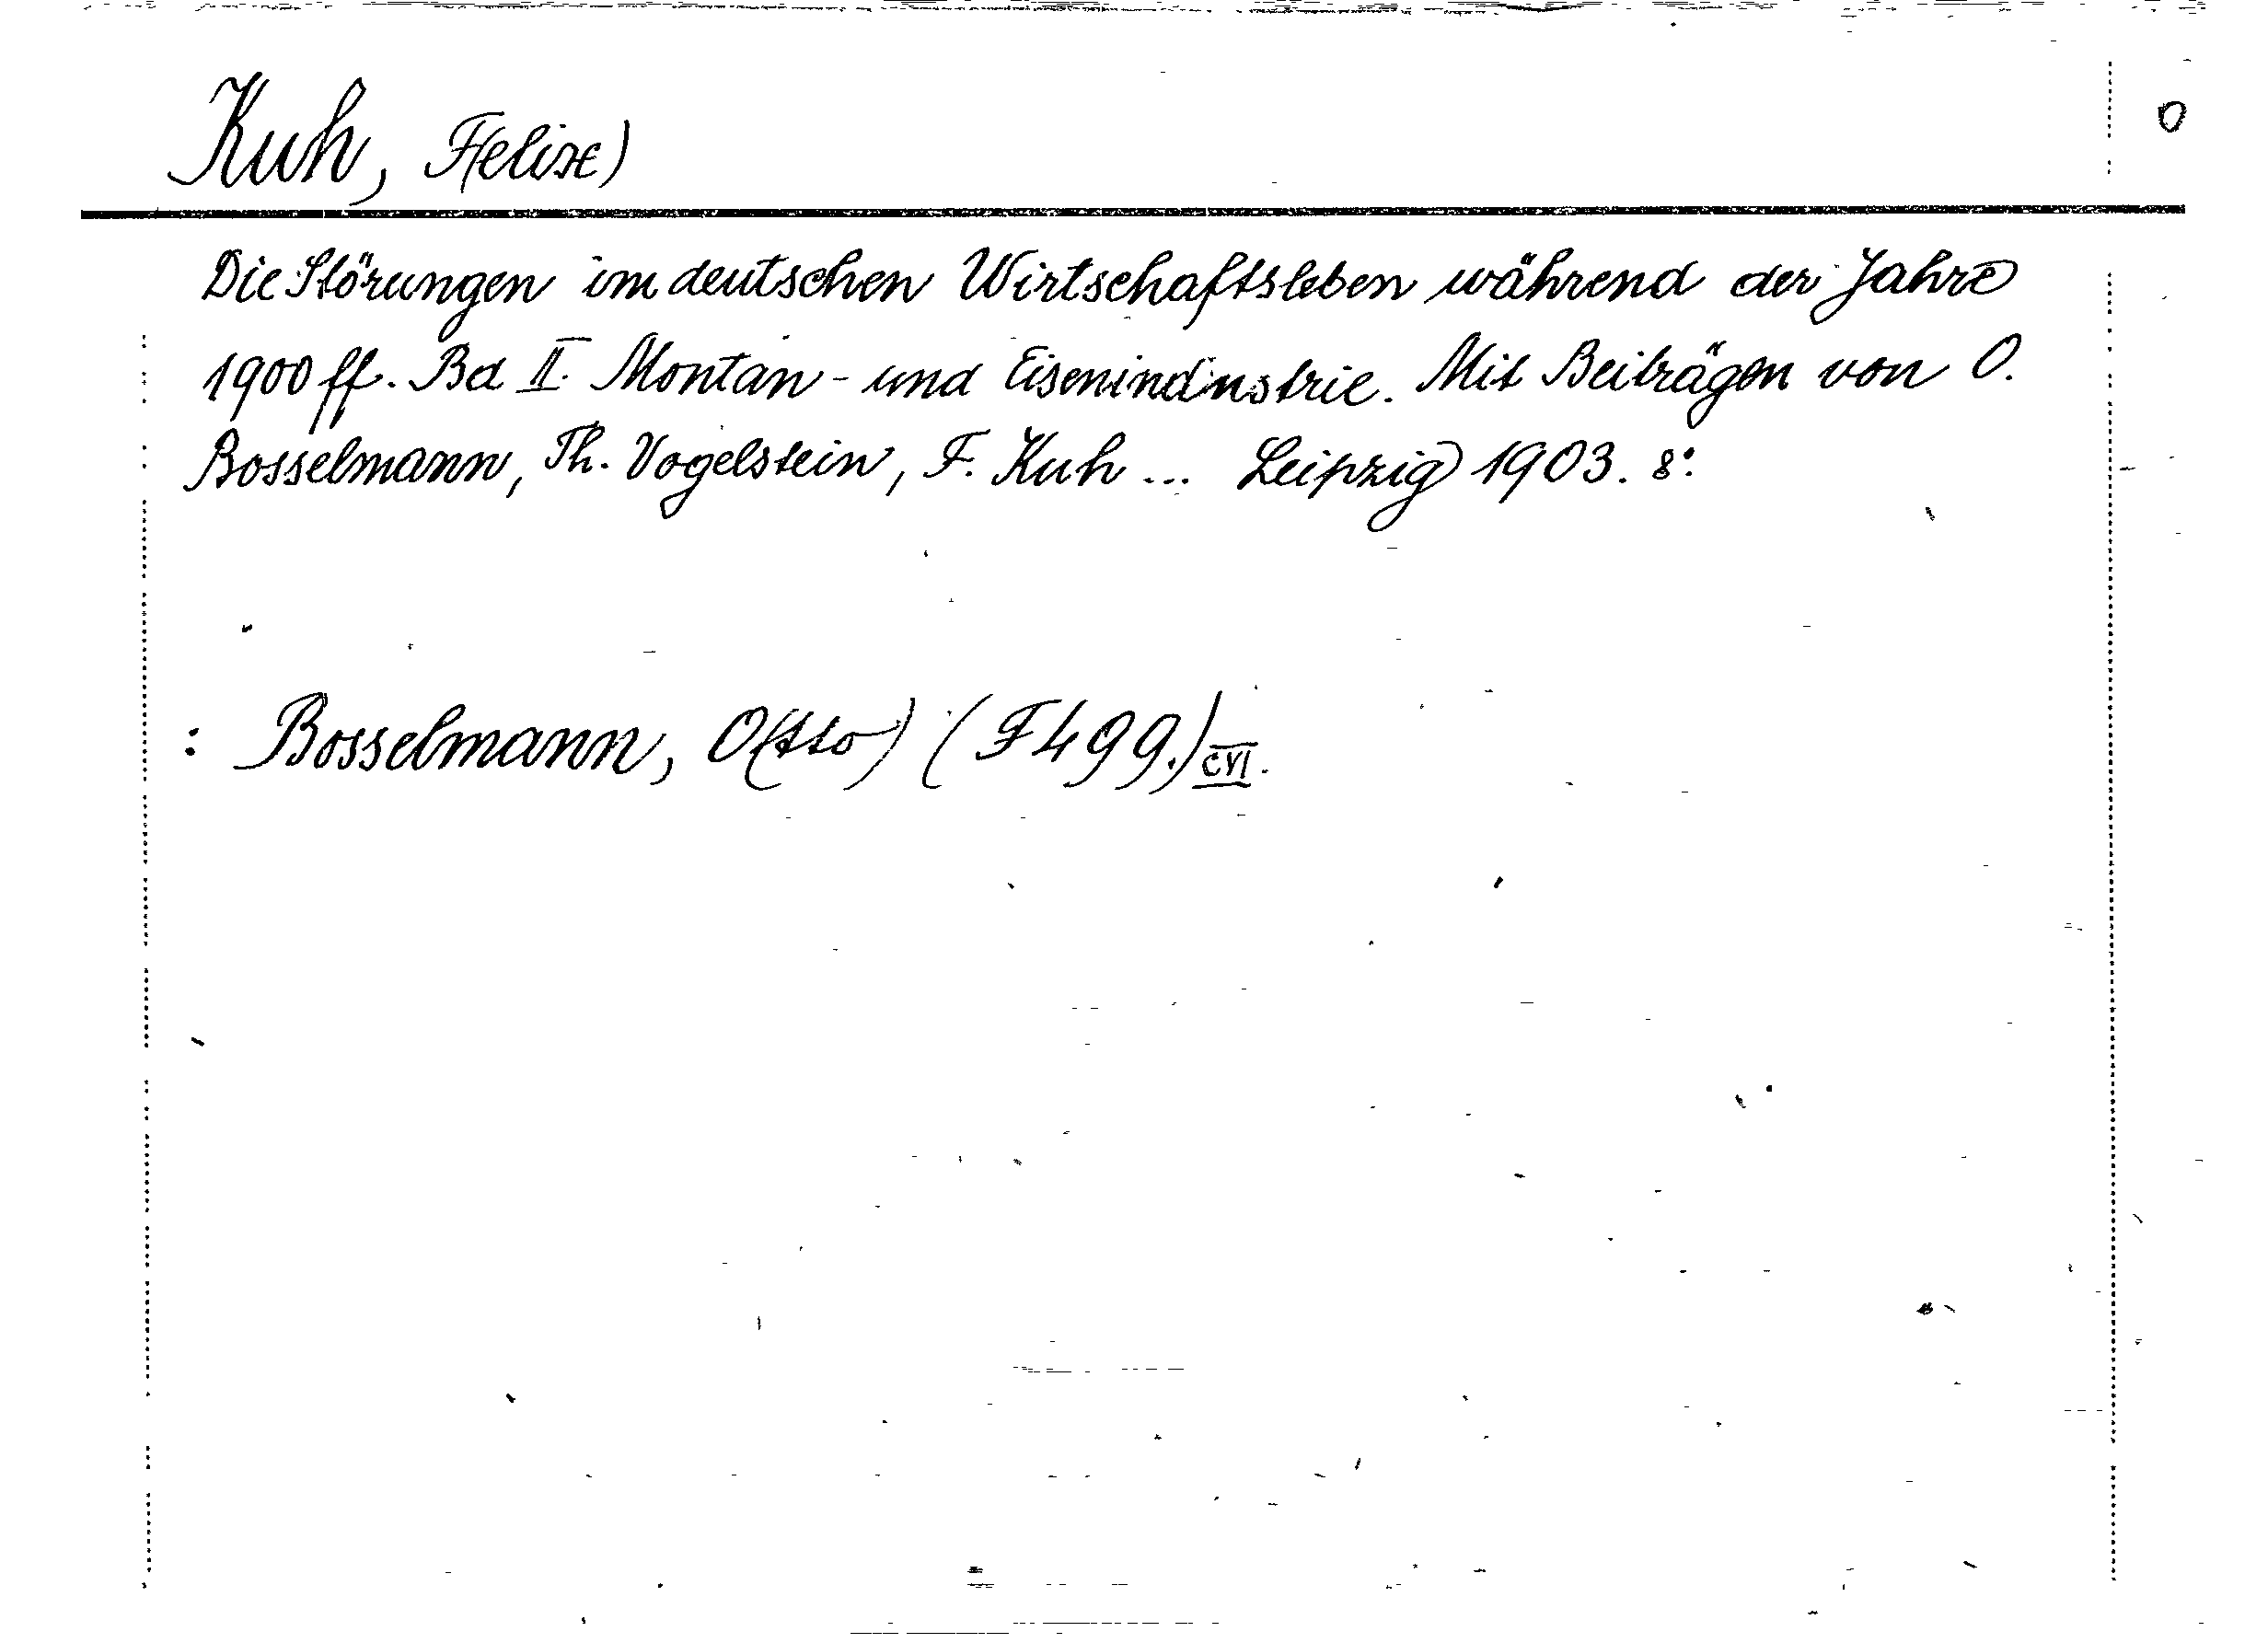 Kuh, F(elix)
0
Die Störungen im deutschen Wirtschaftsleben während der Jahre
1900 ff. Bd II. Montan- und Eisenindustrie. Mit Beiträgen von O.
Bosselmann, Th. Vogelstein, F. Kuh ... Leipzig 1903. 8°.
: Bosselmann, O(tto) (F 499.) CVI.